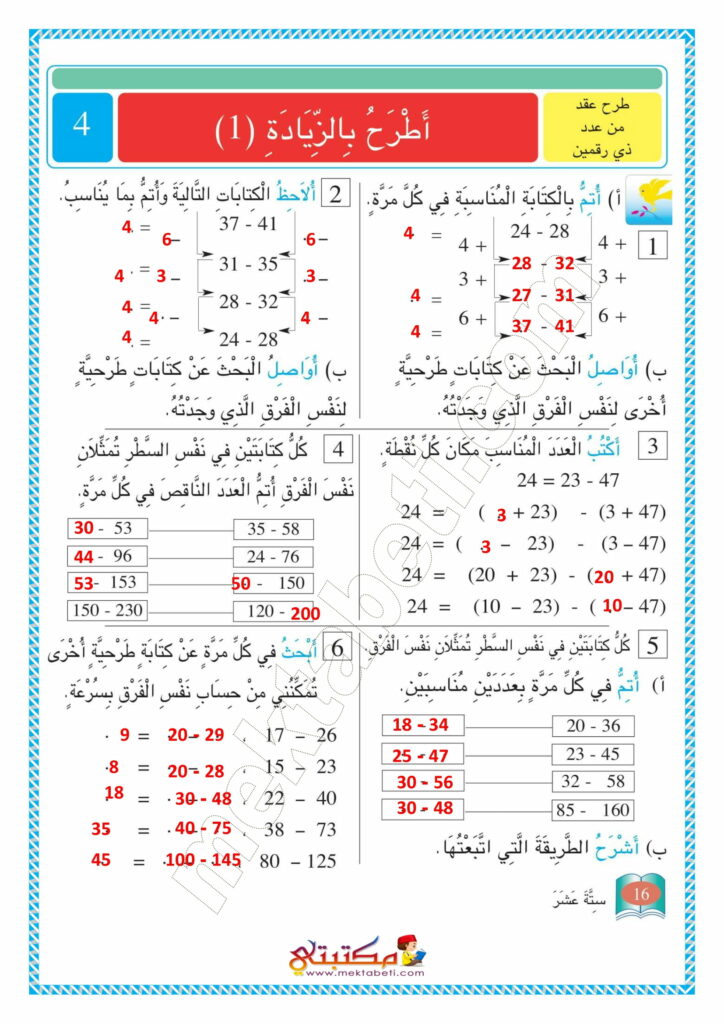 طرح عقد
من عدد
ذي رقمين
أَطْرَحُ بِالزِّيَادَةِ (1)
4
1
أ) أُتِمُّ بِالْكِتَابَةِ الْمُنَاسِبَةِ فِي كُلَّ مَرَّةٍ.
24 - 28 = 4
4 + 4 +
28 - 32
3 + 3 +
27 - 31 = 4
6 + 6 +
37 - 41 = 4
ب) أُوَاصِلُ الْبَحْثَ عَنْ كِتَابَاتٍ طَرْحِيَّةٍ
أُخْرَى لِنَفْسِ الْفَرْقِ الَّذِي وَجَدْتُهُ.
2 أُلاَحِظُ الْكِتَابَاتِ التَّالِيَةَ وَأُتِمُّ بِمَا يُنَاسِبُ.
37 - 41 = 4
6 – 6 –
31 - 35 = 4
3 – 3 –
28 - 32 = 4
4 – 4 –
24 - 28 = 4
ب) أُوَاصِلُ الْبَحْثَ عَنْ كِتَابَاتٍ طَرْحِيَّةٍ
لِنَفْسِ الْفَرْقِ الَّذِي وَجَدْتُهُ.
3 أَكْتُبُ الْعَدَدَ الْمُنَاسِبَ مَكَانَ كُلِّ نُقْطَةٍ.
24 = 23 - 47
24 = ( 3 + 23) - (3 + 47)
24 = ( 3 – 23) - (3 – 47)
24 = (20 + 23) - (20 + 47)
24 = (10 – 23) - (10 – 47)
4 كُلُّ كِتَابَتَيْنِ فِي نَفْسِ السَّطْرِ تُمَثِّلاَنِ
نَفْسَ الْفَرْقِ أُتِمُّ الْعَدَدَ النَّاقِصَ فِي كُلِّ مَرَّةٍ.
30 - 53 35 - 58
44 - 96 24 - 76
53 - 153 50 - 150
150 - 230 120 - 200
5 كُلُّ كِتَابَتَيْنِ فِي نَفْسِ السَّطْرِ تُمَثِّلاَنِ نَفْسَ الْفَرْقِ.
أ) أُتِمُّ فِي كُلِّ مَرَّةٍ بِعَدَدَيْنِ مُنَاسِبَيْنِ.
18 - 34 20 - 36
25 - 47 23 - 45
30 - 56 32 - 58
30 - 48 85 - 160
ب) أَشْرَحُ الطَّرِيقَةَ الَّتِي اتَّبَعْتُهَا.
6 أَبْحَثُ فِي كُلِّ مَرَّةٍ عَنْ كِتَابَةٍ طَرْحِيَّةٍ أُخْرَى
تُمَكِّنُنِي مِنْ حِسَابِ نَفْسِ الْفَرْقِ بِسُرْعَةٍ.
9 = 20 - 29 ، 17 – 26
8 = 20 - 28 ، 15 – 23
18 = 30 - 48 ، 22 – 40
35 = 40 - 75 ، 38 – 73
45 = 100 - 145 80 – 125
16
سِتَّةَ عَشَرَ
مكتبتي
www.mektabeti.com
mektabeti.com